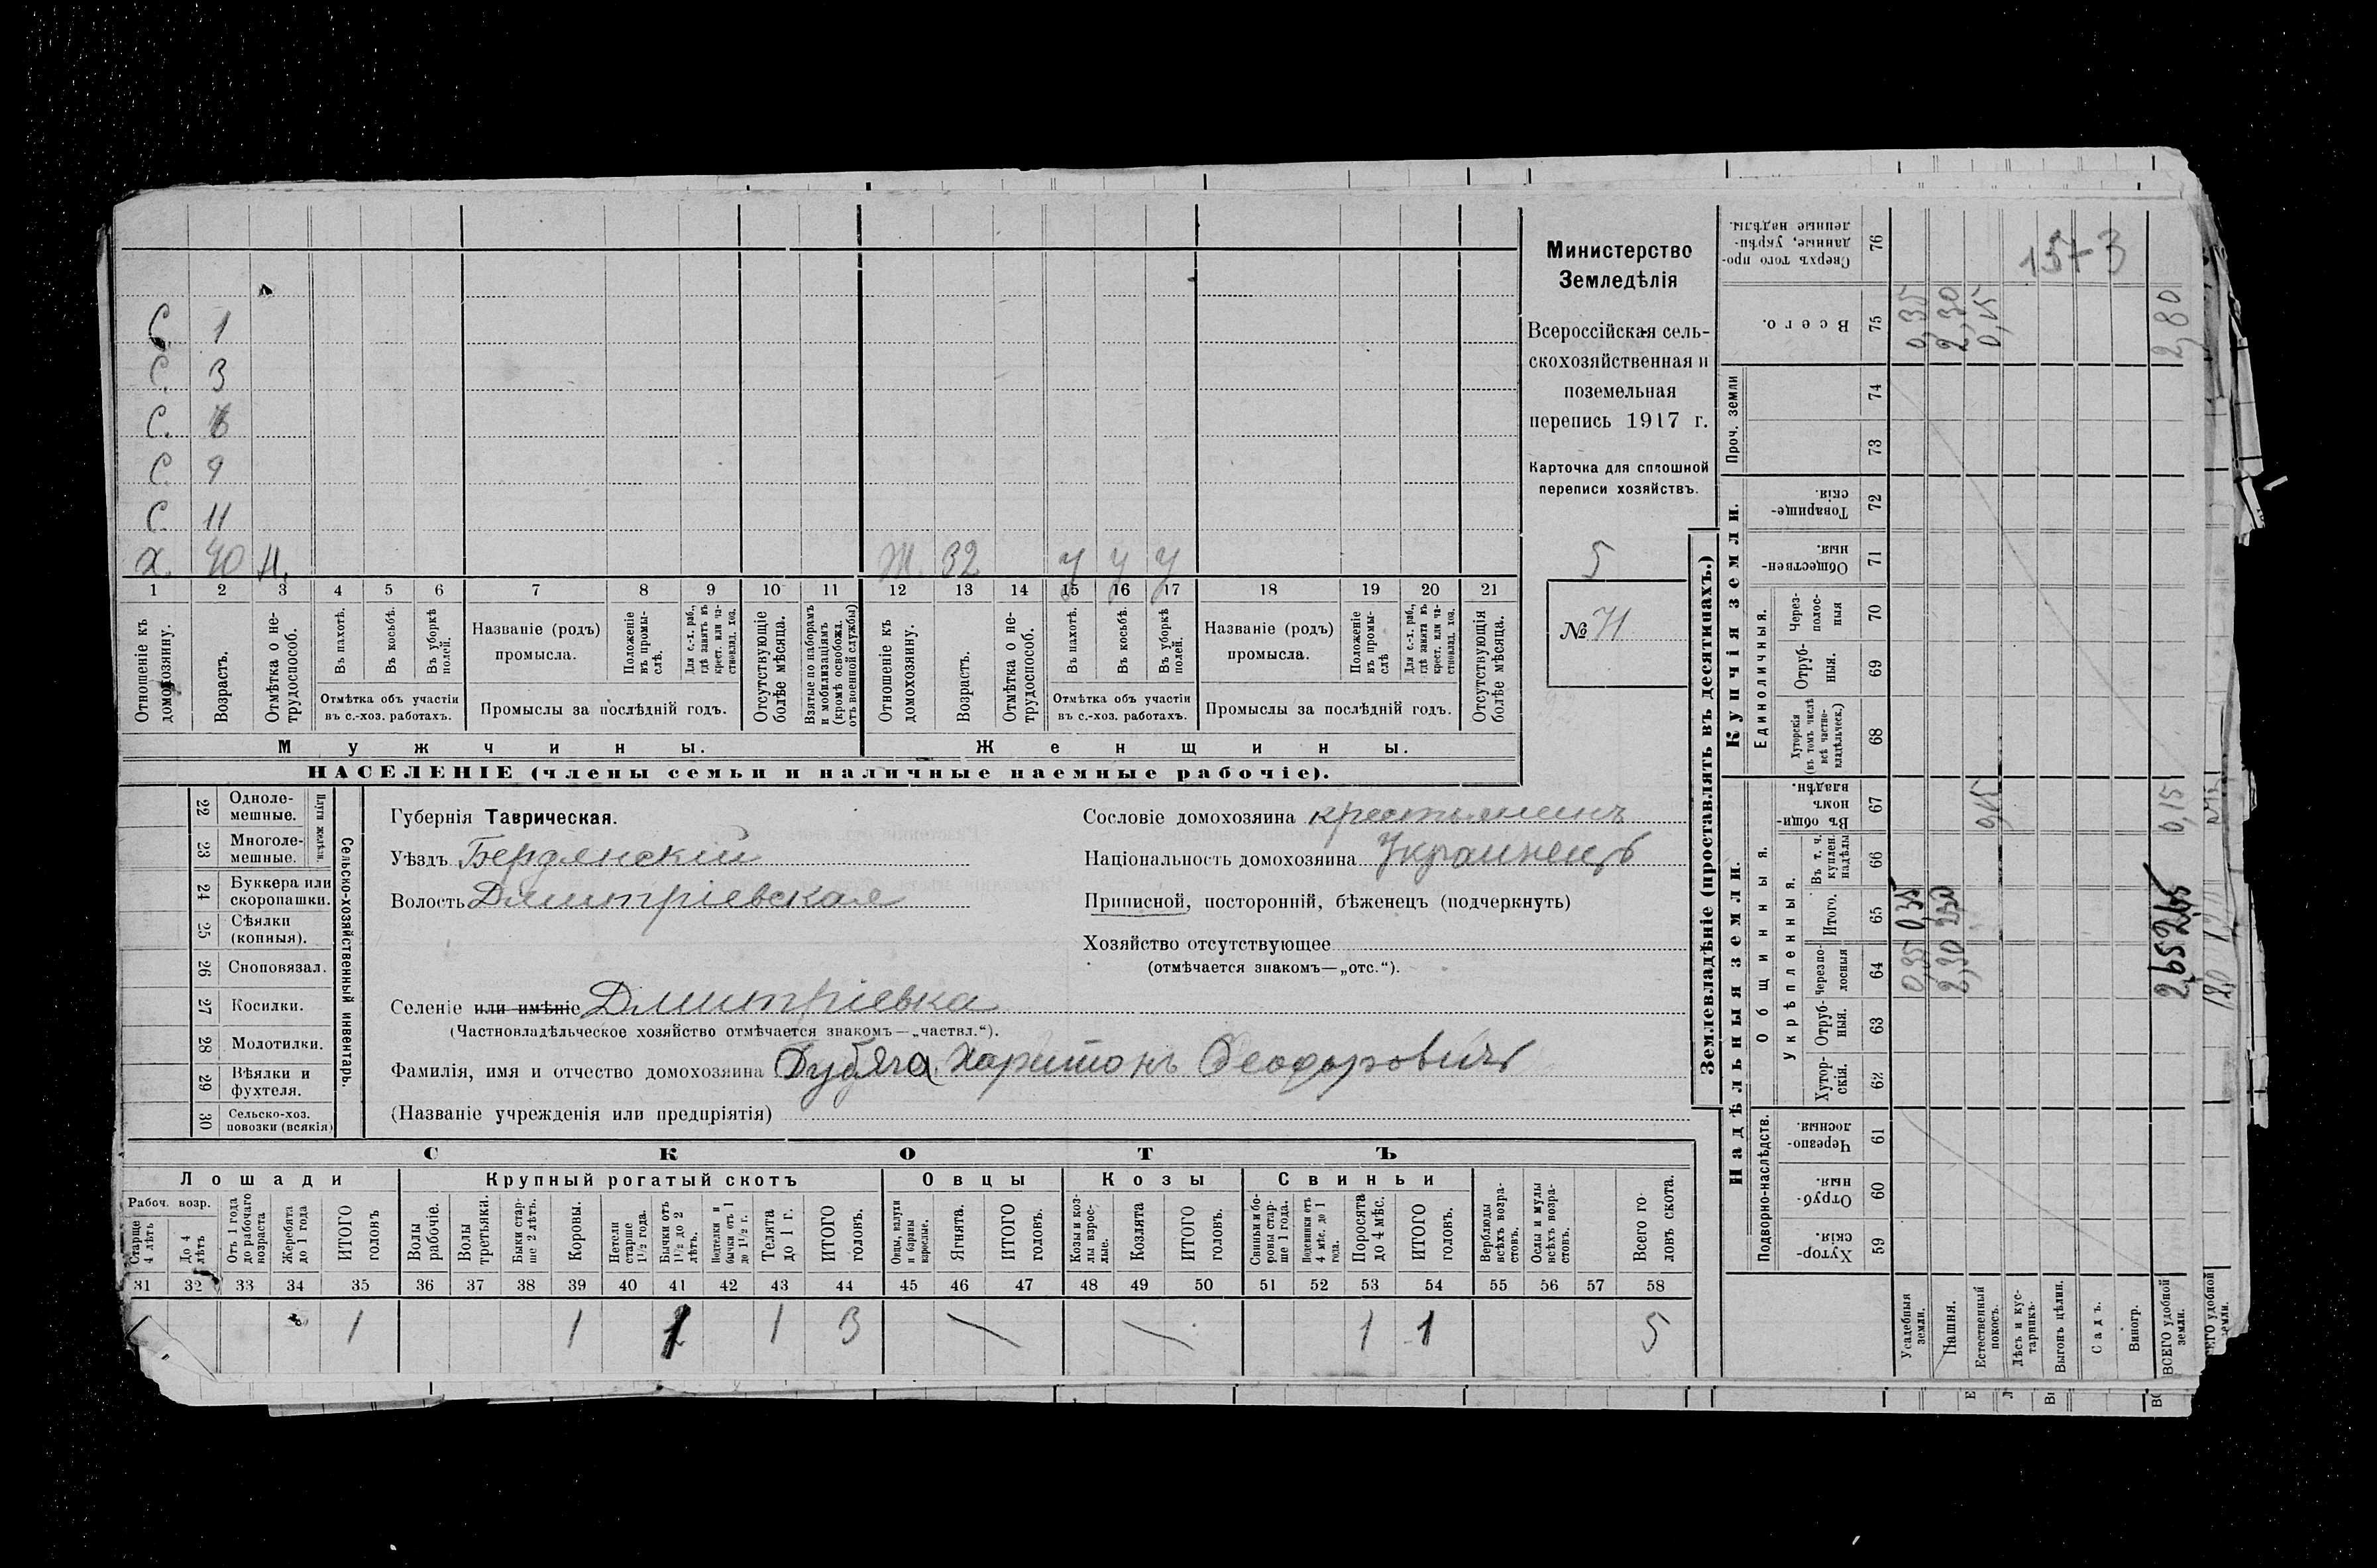 С. 1
С. 3
С. 6
С 9
С. 11
Х. 40 Н. Ж. 32 У У У
1 2 3 4 5 6 7 8 9 10 11 12 13 14 15 16 17 18 19 20 21
Отношеніе къ домохозяину.
Возрастъ.
Отмѣтка о не-трудоспособ.
Въ пахотѣ.
Въ косьбѣ.
Въ уборкѣ полей.
Отмѣтка объ участіи
въ с.-хоз. работахъ.
Названіе (родъ)
промысла.
Положеніе въ промы-слѣ.
Для с.-х. раб., гдѣ занятъ въ крест. или ча-стновлад. хоз.
Промыслы за послѣдній годъ.
Отсутствующіе болѣе мѣсяца.
Взятые по наборамъ и мобилизаціямъ (кромѣ освобожд. отъ военной службы)
Отношеніе къ домохозяину.
Возрастъ.
Отмѣтка о не-трудоспособ.
Въ пахотѣ.
Въ косьбѣ.
Въ уборкѣ полей.
Отмѣтка объ участіи
въ с.-хоз. работахъ.
Названіе (родъ)
промысла.
Положеніе въ промы-слѣ
Для с.-х. раб., гдѣ занята въ крест. или ча-стновлад. хоз.
Промыслы за послѣдній годъ.
Отсутствующія болѣе мѣсяца.
Мужчины.
Женщины.
НАСЕЛЕНІЕ (члены семьи и наличные наемные рабочіе).
Министерство
Земледѣлія
Всероссійская сель-
скохозяйственная и
поземельная
перепись 1917 г.
Карточка для сплошной
переписи хозяйствъ.
5
№ 71
22 Одноле-мешные.
23 Многоле-мешные.
Плуги желѣзн.
24 Буккера или скоропашки.
25 Сѣялки (конныя).
26 Сноповязал.
27 Косилки.
28 Молотилки.
29 Вѣялки и фухтеля.
30 Сельско-хоз. повозки (всякія)
Сельско-хозяйственный инвентарь.
Губернія Таврическая.
Уѣздъ Бердянскій
Волость Дмитріевская
Селеніе или имѣніе Дмитріевка
(Частновладѣльческое хозяйство отмѣчается знакомъ—„частвл.“).
Фамилія, имя и отчество домохозяина Дубяга Харитонъ Феодоровичъ
(Названіе учрежденія или предпріятія)
Сословіе домохозяина крестьянинъ
Національность домохозяина Украинецъ
Приписной, посторонній, бѣженецъ (подчеркнуть)
Хозяйство отсутствующее
(отмѣчается знакомъ—„отс.“).
СКОТЪ
Лошади
Крупный рогатый скотъ
Овцы
Козы
Свиньи
Рабоч. возр.
Старше 4 лѣтъ
До 4 лѣтъ
Отъ 1 года до рабочаго возраста
Жеребята до 1 года
ИТОГО головъ
Волы рабочіе.
Волы третьяки.
Быки стар-ше 2 лѣтъ.
Коровы.
Нетели старше 1½ года.
Бычки отъ 1½ до 2 лѣтъ.
Подтелки и бычки отъ 1 до 1½ г.
Телята до 1 г.
ИТОГО головъ.
Овцы, валухи и бараны взрослые.
Ягнята.
ИТОГО головъ.
Козы и коз-лы взрос-лые.
Козлята
ИТОГО головъ.
Свиньи и бо-ровы стар-ше 1 года.
Подсвинки отъ 4 мѣс. до 1 года.
Поросята до 4 мѣс.
ИТОГО головъ.
Верблюды всѣхъ возра-стовъ.
Ослы и мулы всѣхъ возра-стовъ.
Всего го-ловъ скота.
31 32 33 34 35 36 37 38 39 40 41 42 43 44 45 46 47 48 49 50 51 52 53 54 55 56 57 58
1 1 1 1 3 1 1 5
Землевладѣніе (проставлять въ десятинахъ.)
Надѣльныя земли.
Купчія земли.
Проч. земли
Подворно-наслѣдств.
Общинныя.
Укрѣпленныя.
Единоличныя.
Хутор-скія. 59
Отруб-ныя. 60
Черезпо-лосныя. 61
Хутор-скія. 62
Отруб-ныя. 63
Черезпо-лосныя 64
Итого. 65
Въ т. ч. куплен. надѣлы 66
Въ общи-номъ владѣн. 67
Хуторскія (въ томъ числѣ всѣ частно-владѣльческ.) 68
Отруб-ныя. 69
Через-полос-ныя 70
Обществен-ныя. 71
Товарище-скія. 72
73
74
Всего. 75
Сверхъ того про-данные, укрѣп-ленные надѣлы. 76
Усадебныя земли. 0,35 0,35 0,35
Пашня. 2,30 2,30 2,30
Естественный покосъ. 0,15 0,15
Лѣсъ и кус-тарникъ.
Выгонъ цѣлин.
Садъ.
Виногр.
ВСЕГО удобной земли. 2,65 2,65 0,15 2,80
157-3